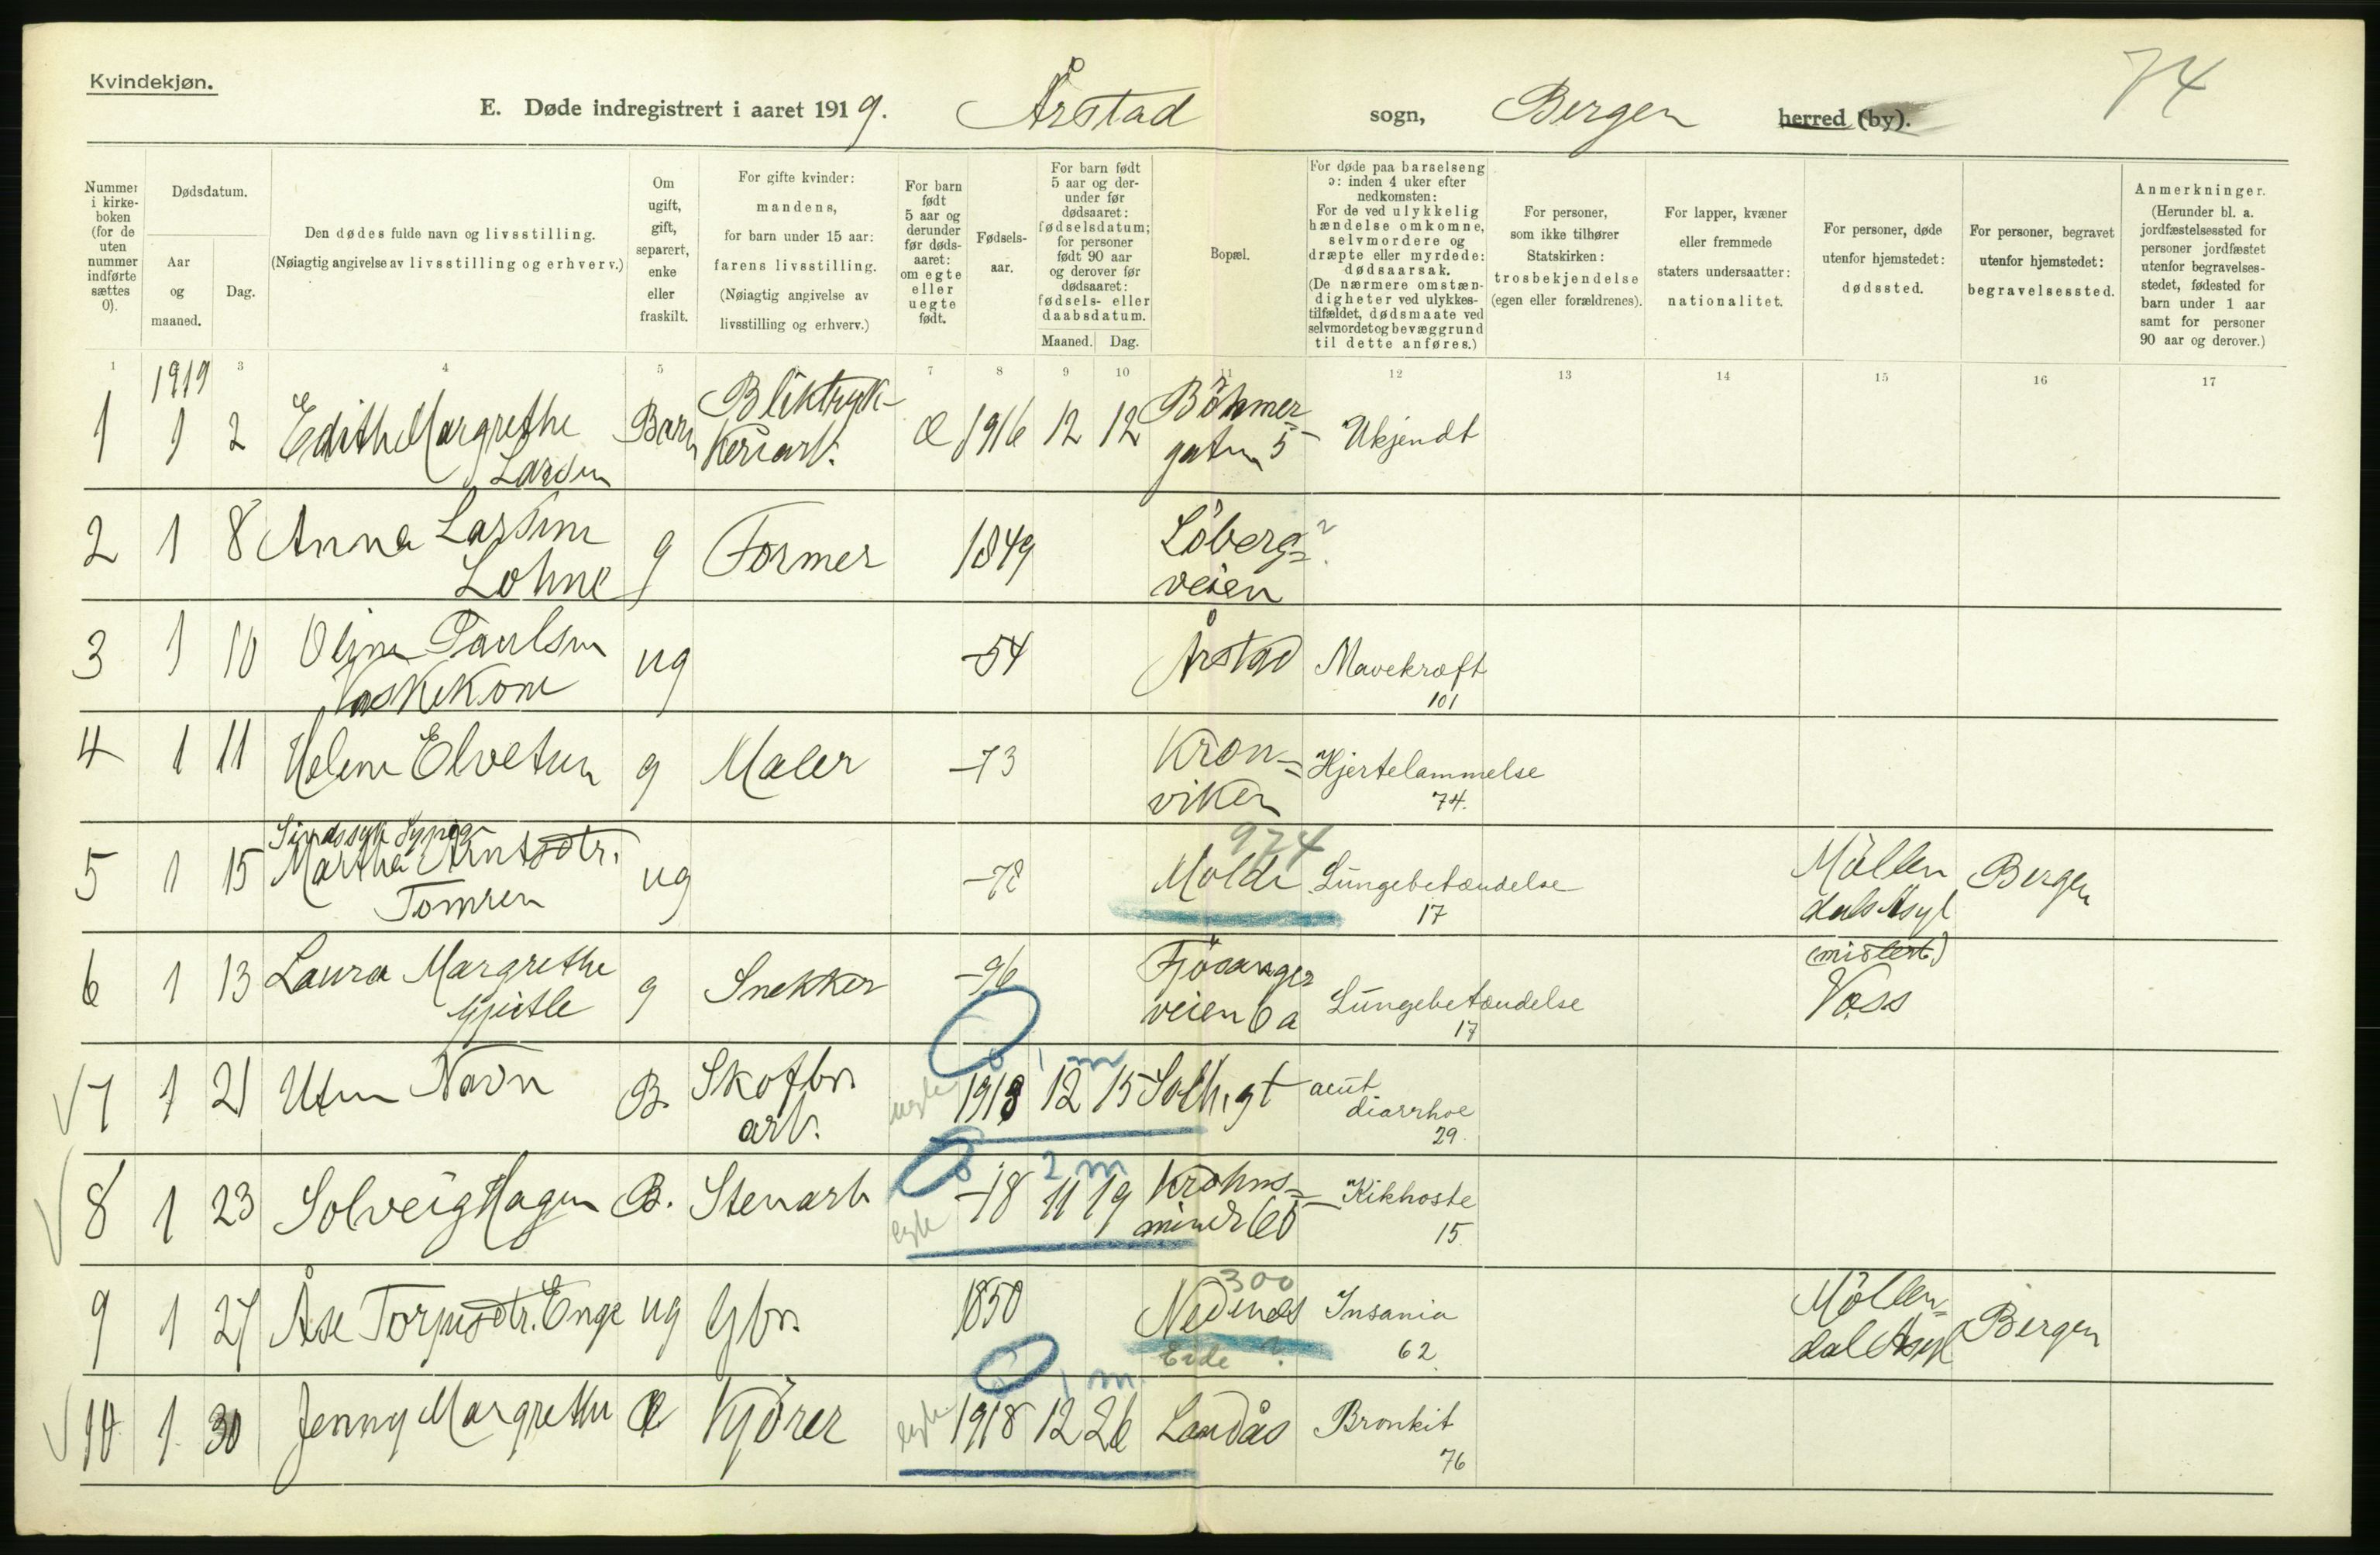 Kvindekjøn.
74
E. Døde indregistrert i aaret 1919. Årstad sogn, Bergen herred (by).
Nummer i kirke-boken (for de uten nummer indførte sættes 0).
Dødsdatum.
Aar og maaned.
Dag.
Den dødes fulde navn og livsstilling.
(Nøiagtig angivelse av livsstilling og erhverv.)
Om ugift, gift, separert, enke eller fraskilt.
For gifte kvinder: mandens, for barn under 15 aar: farens livsstilling. (Nøiagtig angivelse av livsstilling og erhverv.)
For barn født 5 aar og derunder før døds-aaret: om egte eller uegte født.
Fødsels-aar.
For barn født 5 aar og der-under før dødsaaret: fødselsdatum; for personer født 90 aar og derover før dødsaaret: fødsels- eller daabsdatum.
Maaned. Dag.
Bopæl.
For døde paa barselseng ɔ: inden 4 uker efter nedkomsten: For de ved ulykkelig hændelse omkomne, selvmordere og dræpte eller myrdede: dødsaarsak. (De nærmere omstæn-digheter ved ulykkes-tilfældet, dødsmaate ved selvmordet og bevæggrund til dette anføres.)
For personer, som ikke tilhører Statskirken: trosbekjendelse (egen eller forældrenes).
For lapper, kvæner eller fremmede staters undersaatter: nationalitet.
For personer, døde utenfor hjemstedet: dødssted.
For personer, begravet utenfor hjemstedet: begravelsessted.
Anmerkninger. (Herunder bl. a. jordfæstelsessted for personer jordfæstet utenfor begravelses-stedet, fødested for barn under 1 aar samt for personer 90 aar og derover.)
1 3 4 5 7 8 9 10 11 12 13 14 15 16 17
1919
1 1 2 Edith Margrethe Larsen Barn Bliktryk-keriarb. e 1916 12 12 Böhmer-gaten 5 Ukjendt
2 1 8 Anna Larsine Lohne g Former 1849 Löberg-veien
3 1 10 Olina Paulsen Vaskekone ug -54 Årstad Mavekræft 101
4 1 11 Helene Elvetun g Maler -73 Kron-viken Hjertelammelse 74.
5 1 15 Sindssyk Sypige Martha Arntsdtr. Tomren ug -78 974 Molde Lungebetændelse 17 Möllendals Asyl Bergen
6 1 13 Laura Margrethe Gjerde g Snekker -96 Fjösanger veien 6 a Lungebetændelse 17 Voss
7 1 21 Uten Navn B. Skofbr. arb. uegte 0 1 m 1918 12 15 Solh.gt acut diarrhoe 29.
8 1 23 Solveig Hagen B. Stenarb egte 0 2 m -18 11 19 Krohns-minde 60 Kikhoste 15.
9 1 27 Åse Torjusdtr. Enge ug Gbr. 1850 300 Nedenes Eide ? Insania 62 Möllen-dal Asyl Bergen
10 1 30 Jenny Margrethe Kjörer egte 0 1 m. 1918 12 26 Landås Bronkit 76